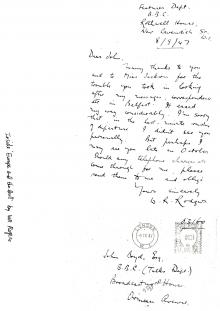 Features Dept.
B.B.C.
Rothwell House,
New Cavendish St.
W.1.
8/9/47
Dear John,
Many thanks to you
and to Miss Jackson for the
trouble you took in looking
after my message correspondence
in Belfast. It eased
my way considerably. I'm sorry
that in the last-minute rush
of departure I didn't see you
personally. But perhaps I
may see you late in October.
Should any telephone charges
come through for me please
send them to me and oblige
Yours sincerely
W. R. Rodgers
John Boyd, Esq.
B.B.C. (Talks Dept)
Broadcasting House
Ormeau Avenue.